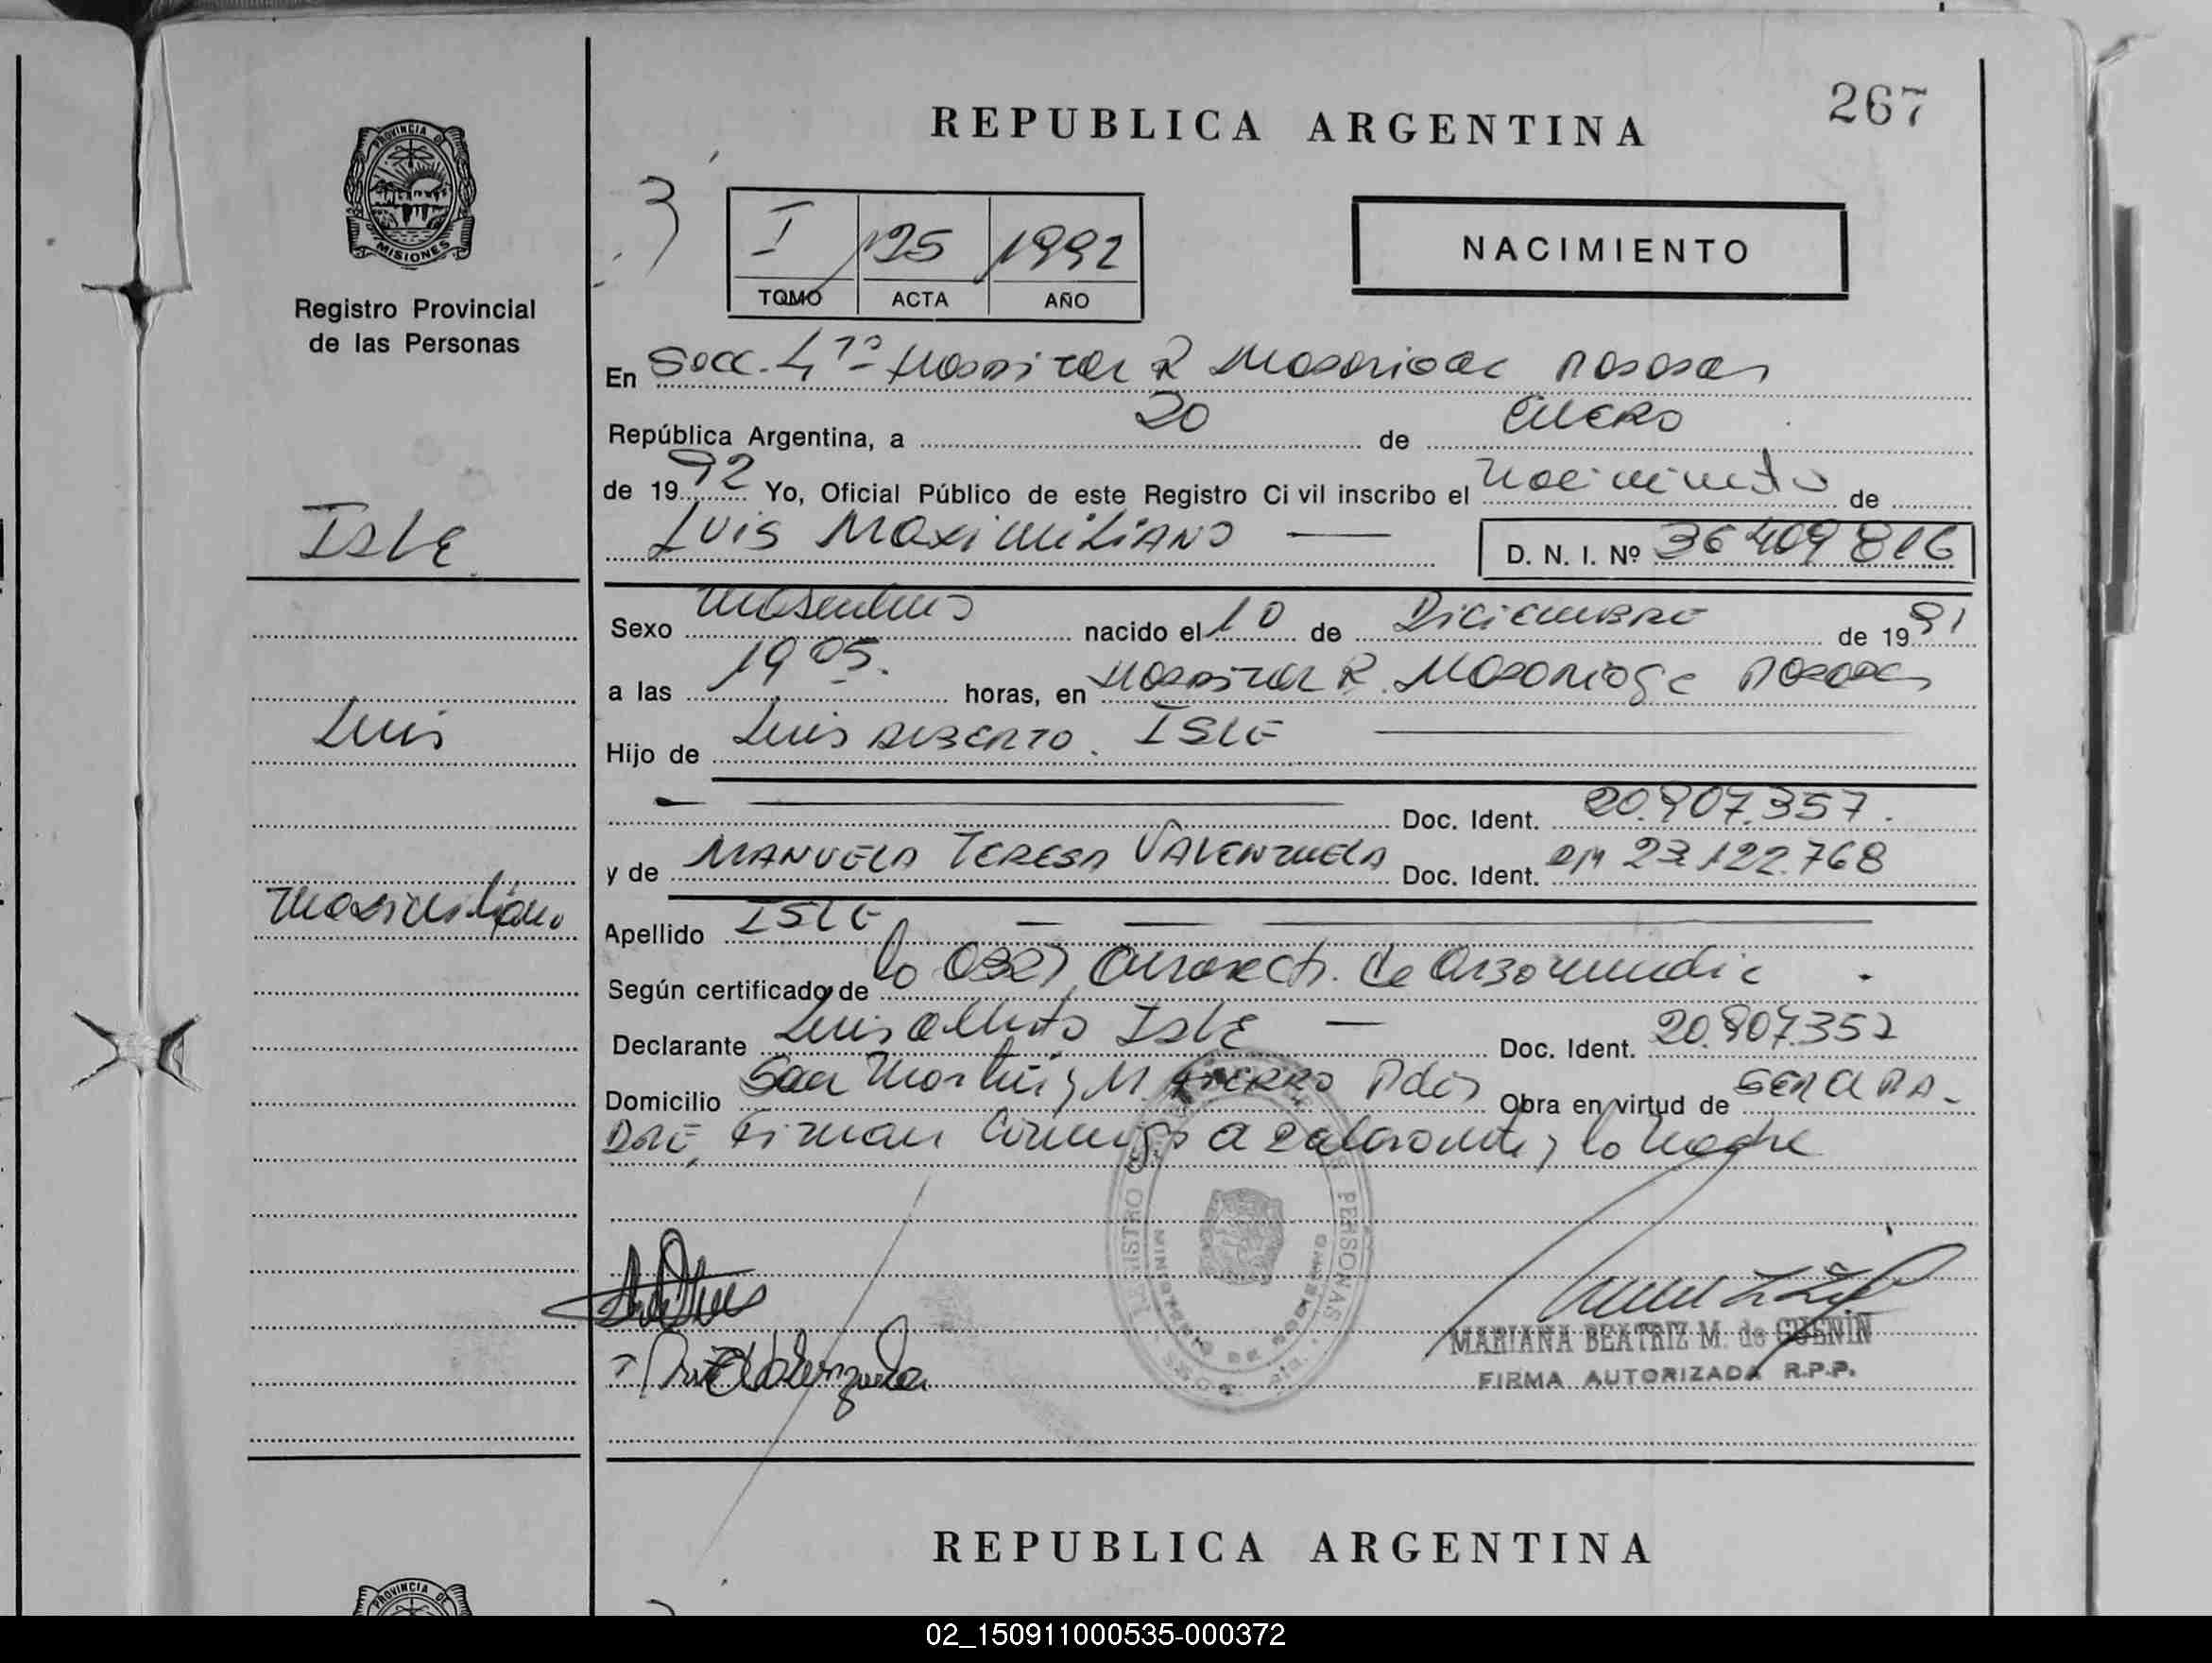 267
REPUBLICA ARGENTINA
PROVINCIA DE MISIONES
Registro Provincial
de las Personas
I 125 1992
TOMO ACTA AÑO
NACIMIENTO
En Secc. 4ta Hospital R Madariaga Posadas
República Argentina, a 20 de ENERO
de 1992 Yo, Oficial Público de este Registro Civil inscribo el Nacimiento de
Luis MaximiLiANO
D. N. I. Nº 36409816
Isle
Sexo Masculino nacido el 10 de Diciembre de 1991
a las 19 05. horas, en Hospital R. Madariaga Posadas
Luis
Hijo de Luis ALBERTO. ISLE
Doc. Ident. 20.907.357.
y de MANUELA TERESA VALENZUELA Doc. Ident. 23.122.768
Maximiliano
Apellido ISLE
Según certificado de la Obst. de
Declarante Luis Alberto Isle Doc. Ident. 20.907.357
Domicilio San Martín y M. FIERRO Pdas Obra en virtud de SER EL PA-
DRE, Firman Conmigo el declarante y la Madre
REGISTRO PERSONAS
MINISTERIO DE GOBIERNO
Valenzuela
MARIANA BEATRIZ M. de GUENIN
FIRMA AUTORIZADA R.P.P.
REPUBLICA ARGENTINA
PROVINCIA DE
02_150911000535-000372